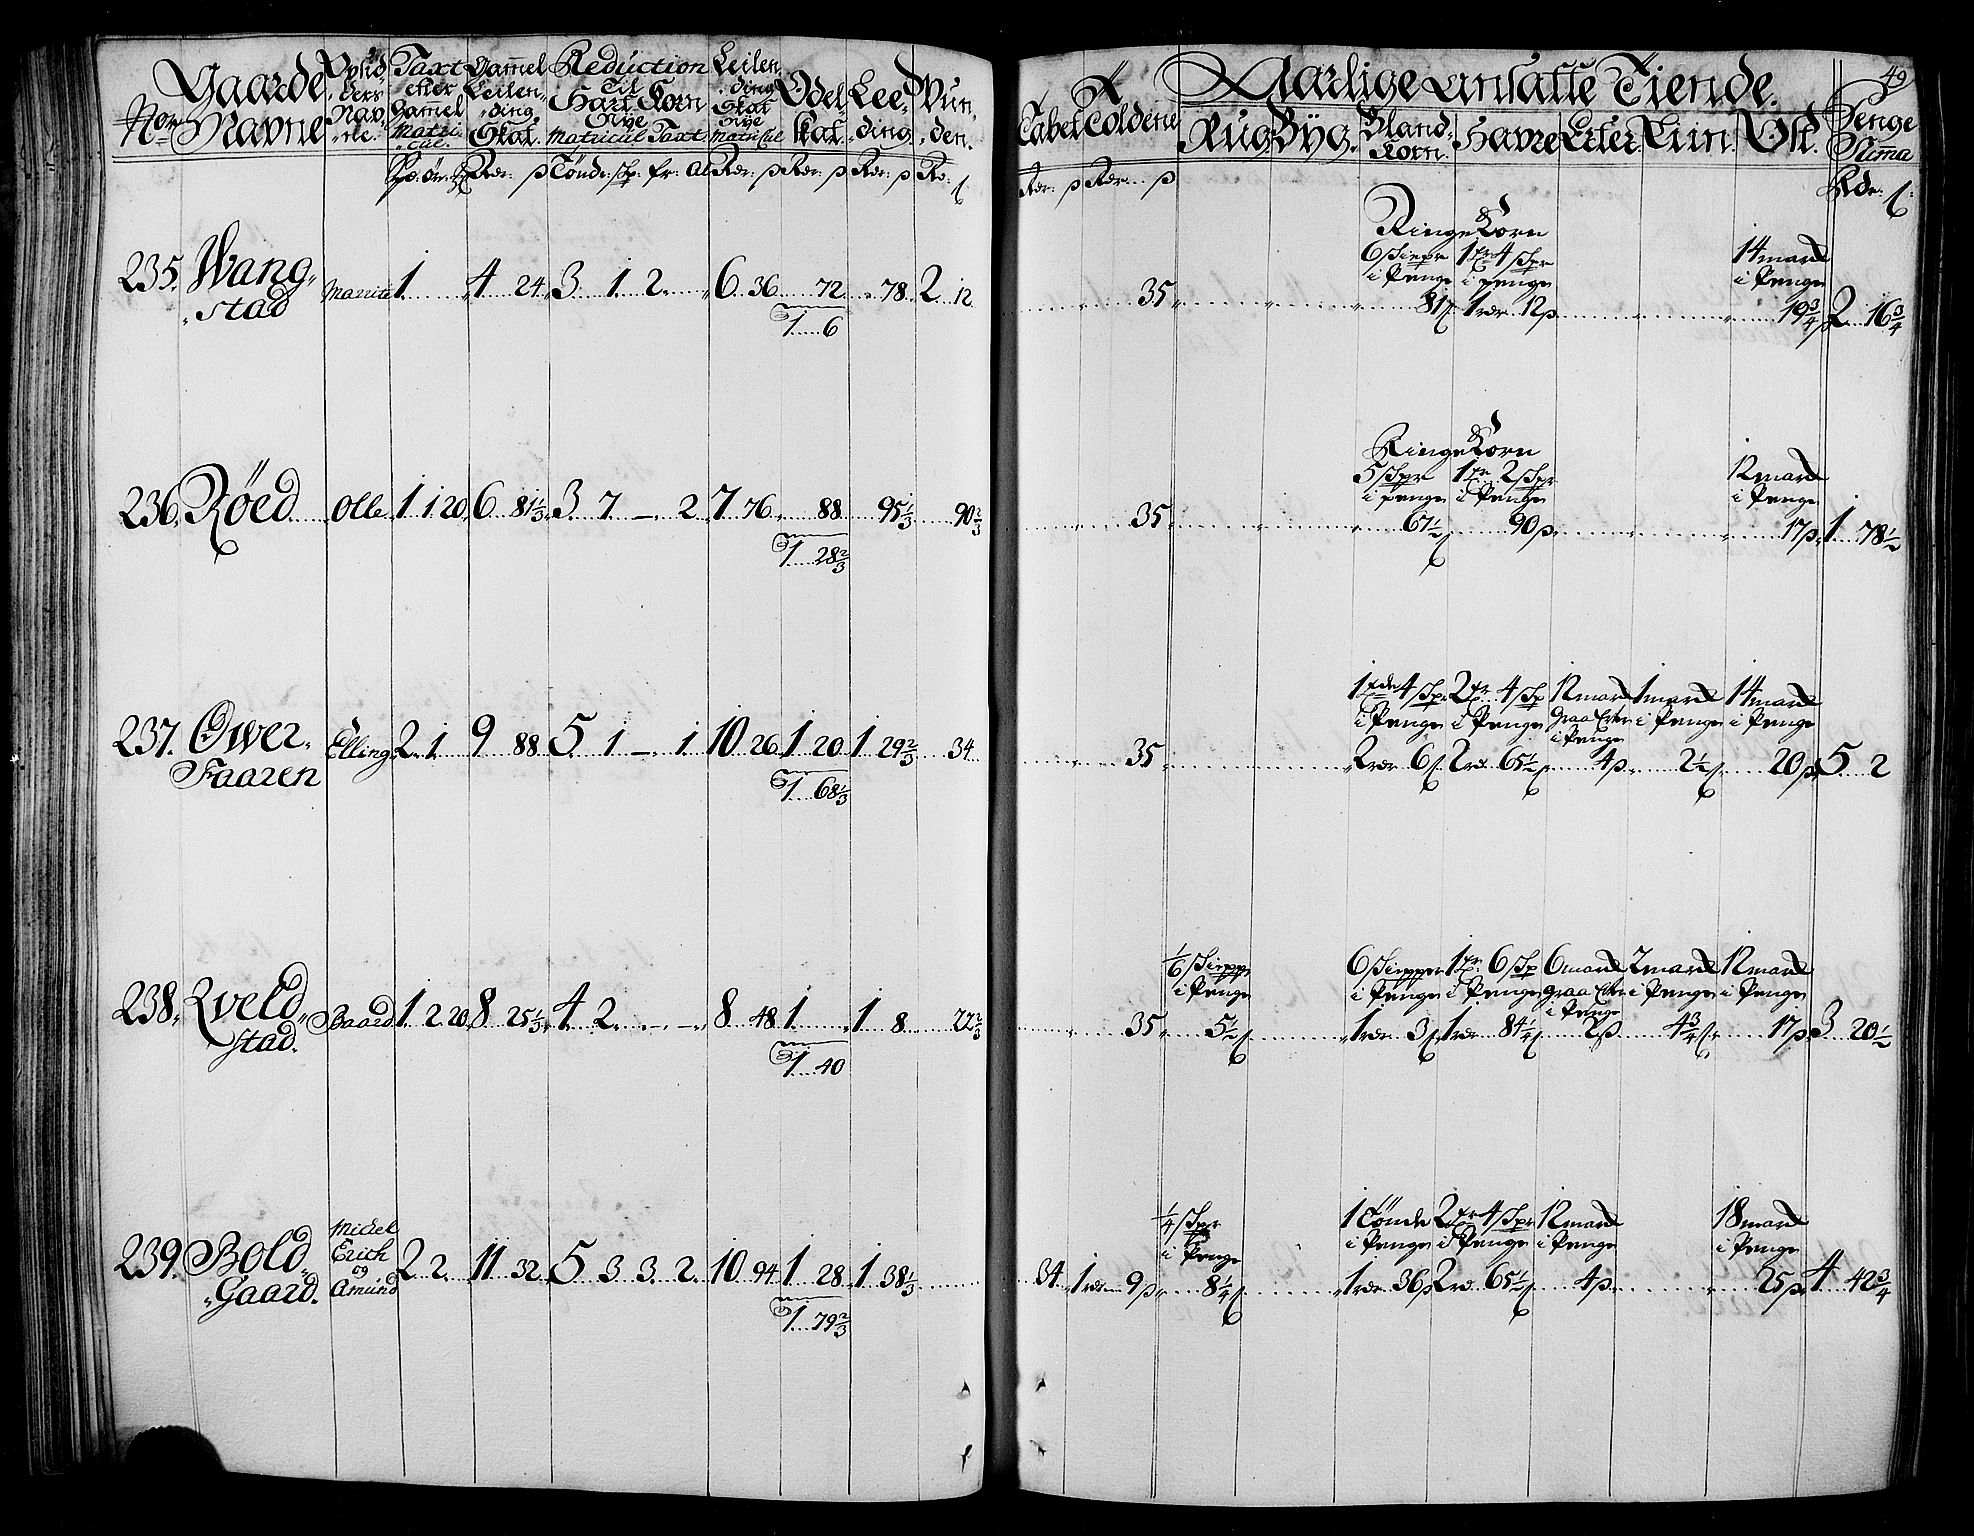 No Gaarde Navne
Opsid- ders Nav- ne.
Taxt efter Gamel Matri- cul.
Gamel Leilen- ding Skat.
Reduction Til Hart-Korn Nye Matricul Taxt
Leilen- ding Skat Nye Matricul
Odel Skat.
Lee- ding
Wun- den.
Tønde: sch: fr: Al
235. Wang- stad Marite 1 4 24 3 1 2 6 36 72 78 2 12
1 6
236. Røed Olle 1 1 20 6 81 1/3 3 7 — 2 7 76 88 95 1/3 90 2/3
1 28 2/3
237. Ower- Faaren Elling 2 1 9 88 5 1 — 1 10 26 1 20 1 29 2/3 34
1 68 1/3
238. Qveld- stad. Baard 1 2 20 8 25 1/3 4 2 — — 8 48 1 1 8 22 2/3
1 40
239. Bold- Gaard. Michel Erich og Amund 2 2 11 32 5 3 3 2 10 94 1 28 1 38 1/3
1 79 2/3
49
A Tabel Toldene
Aarlige Ansatte Tiende.
Rug Byg. Bland- Korn. Havre Erter Liin. Ost. Penge Suma
Ringe Korn
6 Skiepr 1 tr 4 Schpr 14 mark
i Penge i penge i Penge
35 81 1 rdr 12 19 3/4 2 16 3/4
Ringe Korn
5 Schpr 1 tr 2 Schpr 12 mark
i penge i Penge i Penge
35 67 1/2 90 17 1 78 1/2
1 tde 4 Schpr 2 tr 4 Sch 12 mark 1 mark 14 mark
i Penge i Penge Graa Erter i Penge i Penge i Penge
35 2 rdr 6 2 rd 65 1/2 4 2 1/2 20 5 2
1/6 Skieppe 6 Skiepper 1 tr 6 Sch 6 mark 2 mark 12 mark
i Penge i Penge i Penge graa Erter i Penge i Penge i Penge
35 5 1/2 1 rdr 3 1 rdr 84 1/4 2 4 3/4 17 3 20 1/2
1/4 Schpr 1 Tønde 2 tr 4 Schpr 12 mark 18 mark
i Penge i Penge i Penge i Penge i Penge
34 1 rdr 9 8 1/4 1 rdr 36 2 rd 65 1/2 4 25 4 42 3/4